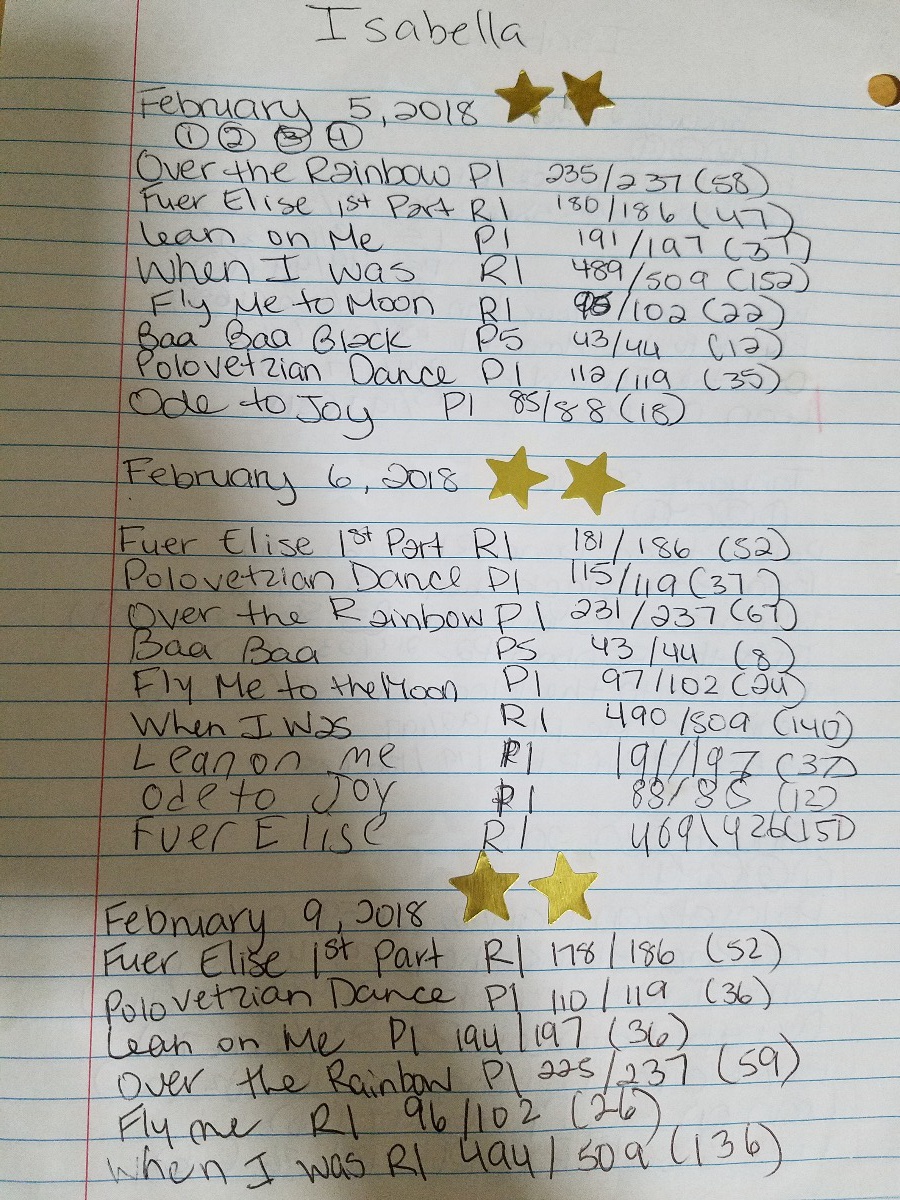 Isabella
February 5, 2018
① ② ③ ④
Over the Rainbow P1 235/237 (58)
Fuer Elise 1st Part R1 180/186 (47)
Lean on Me P1 191/197 (37)
When I was R1 489/509 (152)
Fly Me to Moon R1 /102 (22)
Baa Baa Black P5 43/44 (12)
Polovetzian Dance P1 112/119 (35)
Ode to Joy P1 85/88 (18)
February 6, 2018
Fuer Elise 1st Part R1 181/186 (52)
Polovetzian Dance P1 115/119 (37)
Over the Rainbow P1 231/237 (67)
Baa Baa P5 43/44 (8)
Fly Me to the Moon P1 97/102 (24)
When I Was R1 490/509 (140)
Lean on me 191/197 (37)
Ode to Joy (12)
Fuer Elise R1 409\426(151)
February 9, 2018
Fuer Elise 1st Part R1 178/186 (52)
Polovetzian Dance P1 110/119 (36)
Lean on Me P1 194/197 (36)
Over the Rainbow P1 225/237 (59)
Fly me R1 96/102 (26)
When I was R1 494/509 (136)